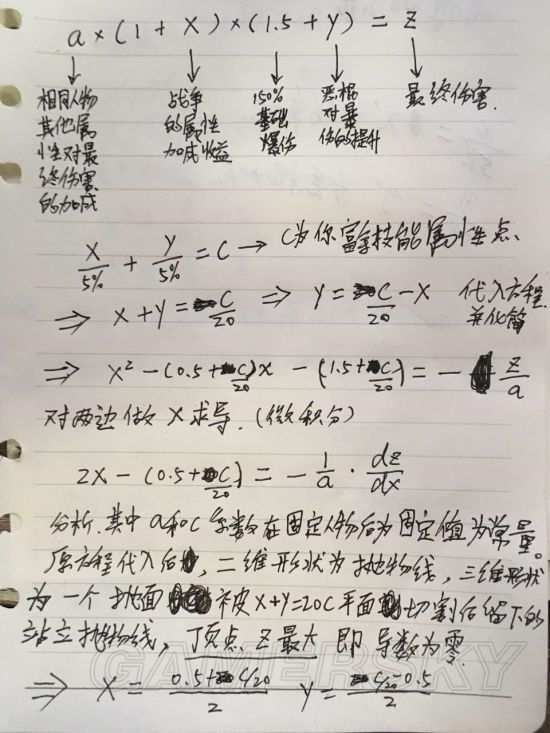 a×(1+X)×(1.5+Y)=Z
相同人物
其他属
性对最
终伤害
的加成
战争
的属性
加成收益
150%
基础
爆伤
恶棍
对暴
伤的提升
最终伤害.
X/5% + Y/5% = C → C为你富余技能属性点.
⇒ X+Y=C/20 ⇒ Y=C/20-X 代入方程
并化简
⇒ X²-(0.5+C/20)x-(1.5+C/20)=-Z/a
对两边做X求导.(微积分)
2X-(0.5+C/20)=-1/a·dz/dx
分析.其中a和C系数在固定人物后为固定值为常量。
原方程代入后,二维形状为抛物线,三维形状
为一个抛面被X+Y=20C平面切割后留下的
站立抛物线,顶点Z最大即导数为零.
GAMERSKY
⇒ X=(0.5+C/20)/2 Y=(C/20-0.5)/2